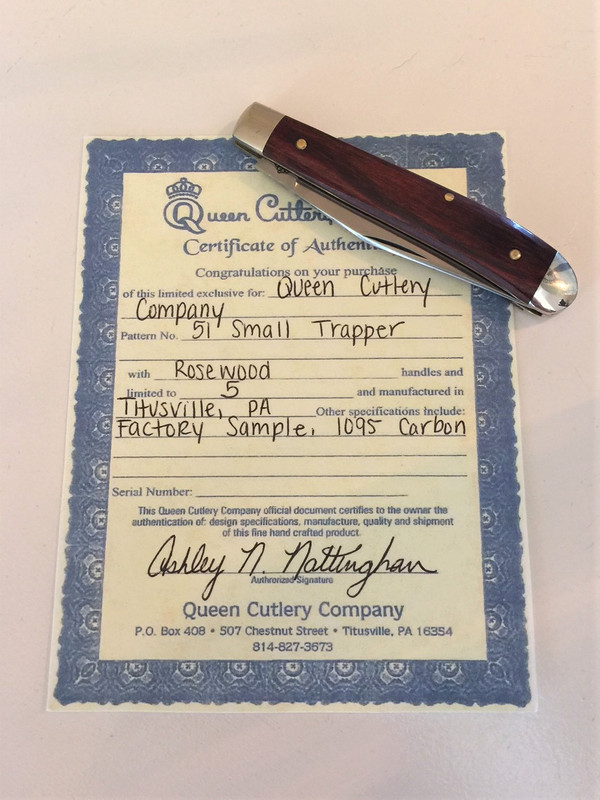 Queen Cutlery
Certificate of Authenti
Congratulations on your purchase
of this limited exclusive for: Queen Cutlery
Company
Pattern No. 51 Small Trapper
with Rosewood handles and
limited to 5 and manufactured in
Titusville, PA Other specifications Include:
Factory Sample, 1095 Carbon
Serial Number:
This Queen Cutlery Company official document certifies to the owner the
authentication of: design specifications, manufacture, quality and shipment
of this fine hand crafted product.
Ashley N. Nottingham
Authrorized Signature
Queen Cutlery Company
P.O. Box 408 • 507 Chestnut Street • Titusville, PA 16354
814-827-3673